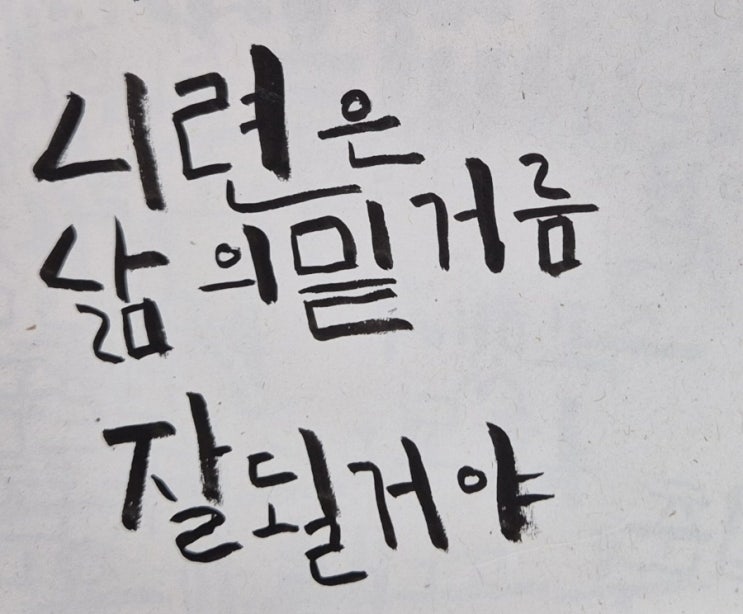 시련은
삶의 밑거름
잘될거야